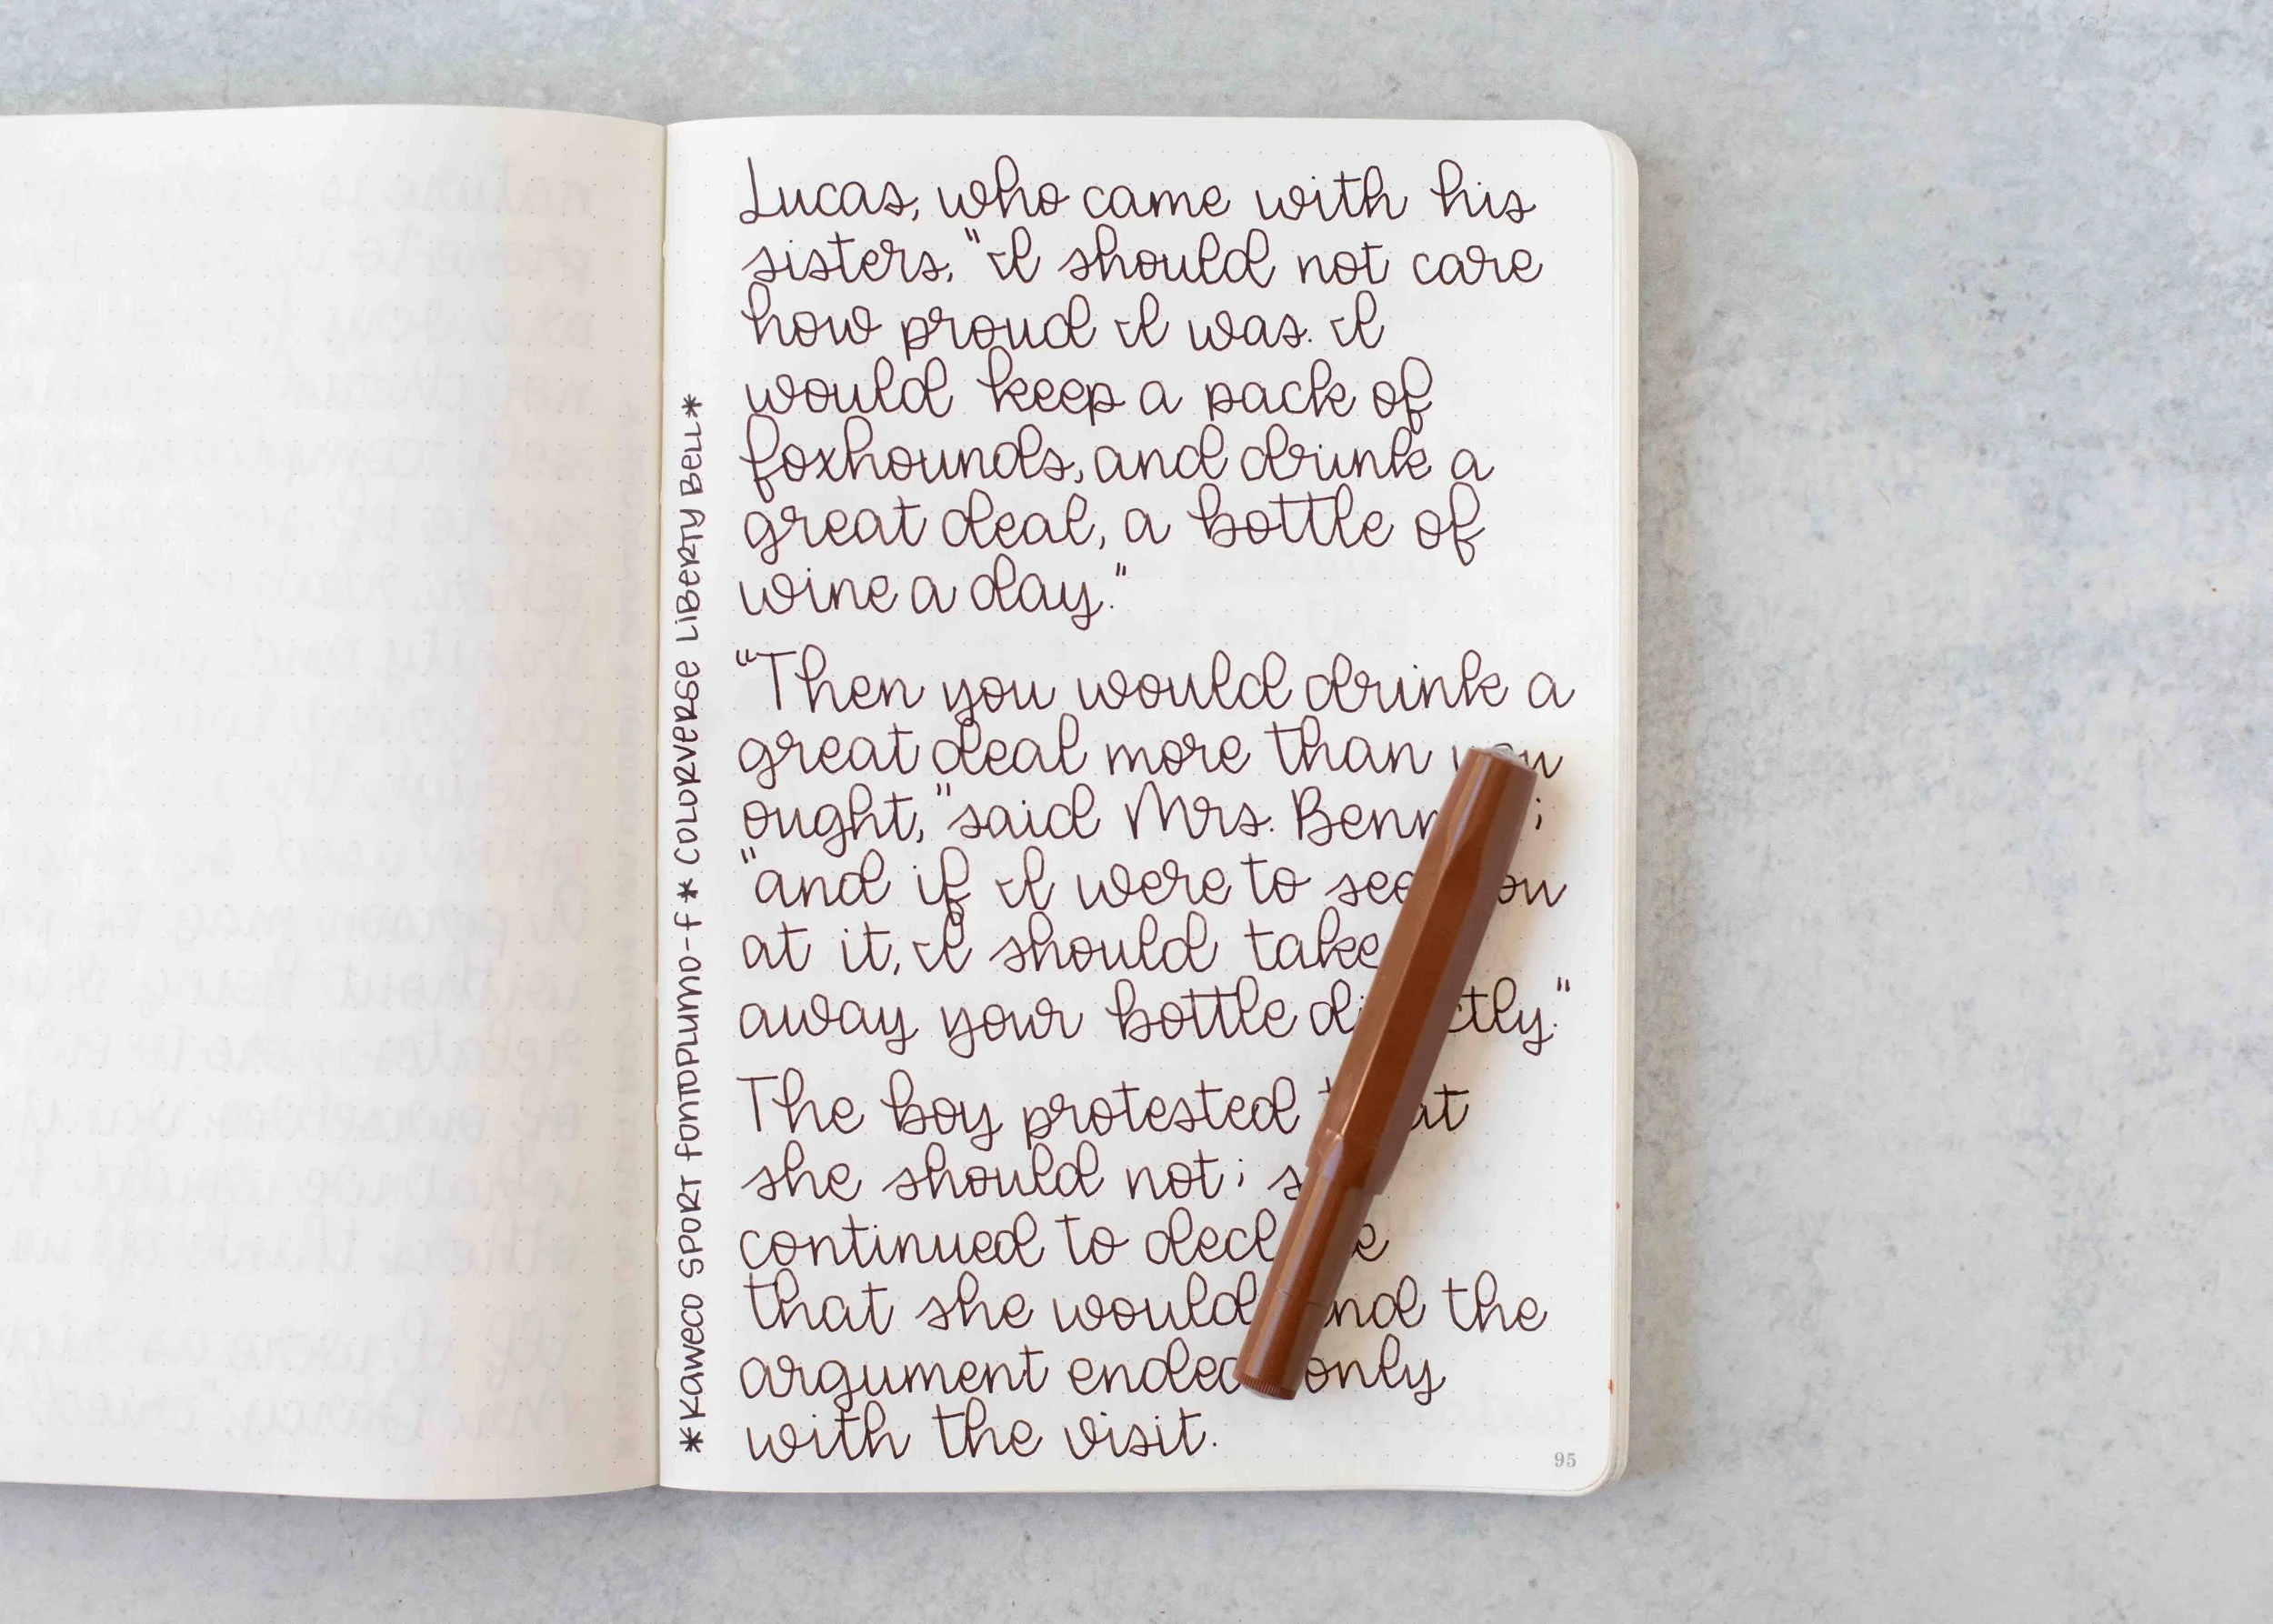 Lucas, who came with his
sisters, "I should not care
how proud I was. I
would keep a pack of
foxhounds, and drink a
great deal, a bottle of
wine a day."
"Then you would drink a
great deal more than you
ought," said Mrs. Bennet;
"and if I were to see you
at it, I should take
away your bottle directly."
The boy protested that
she should not;
continued to declare
that she would, and the
argument ended only
with the visit.
*KAWECO SPORT FONTOPLUMO-F * COLORVERSE LIBERTY BELL*
95